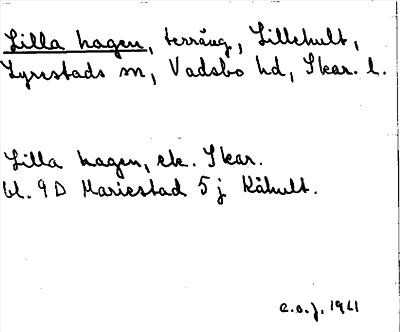 Lilla hagen, terräng, Lillehult,
Lyrestads sn, Vadsbo hd, Skar. l.
Lilla hagen, ek. Skar.
bl. 9 D Mariestad 5 j Kåhult.
C.O.J. 1961